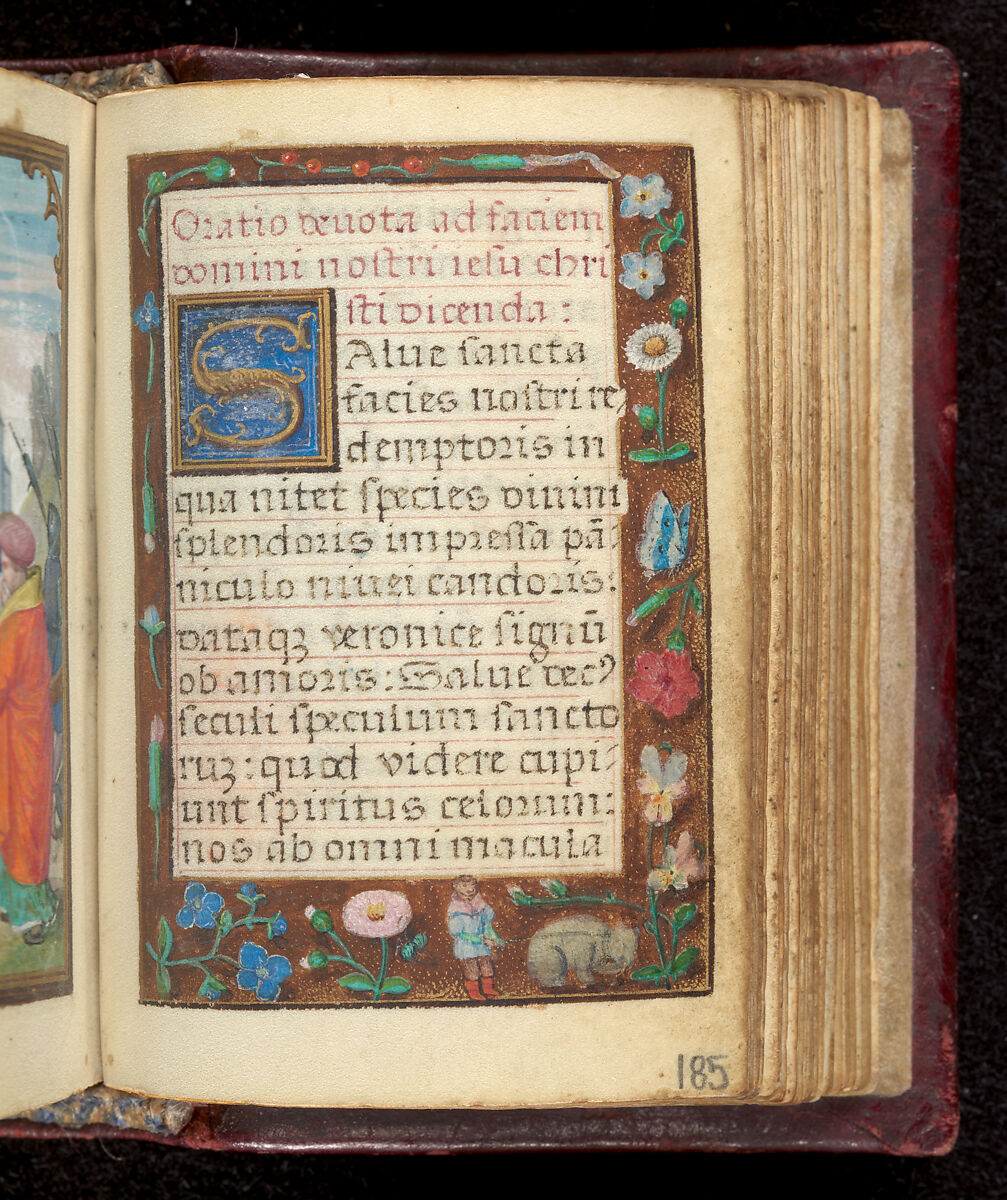 Oratio deuota ad faciem
domini nostri iesu chri
sti dicenda :
SAlue sancta
facies nostri re,
demptoris in
qua nitet species diuini
splendoris impressa pā-
niculo niuei candoris:
dataqꝫ veronice signū
ob amoris: Salue decꝰ
seculi speculum sancto
ruꝫ: quod videre cupi-
unt spiritus celorum:
nos ab omni macula
185